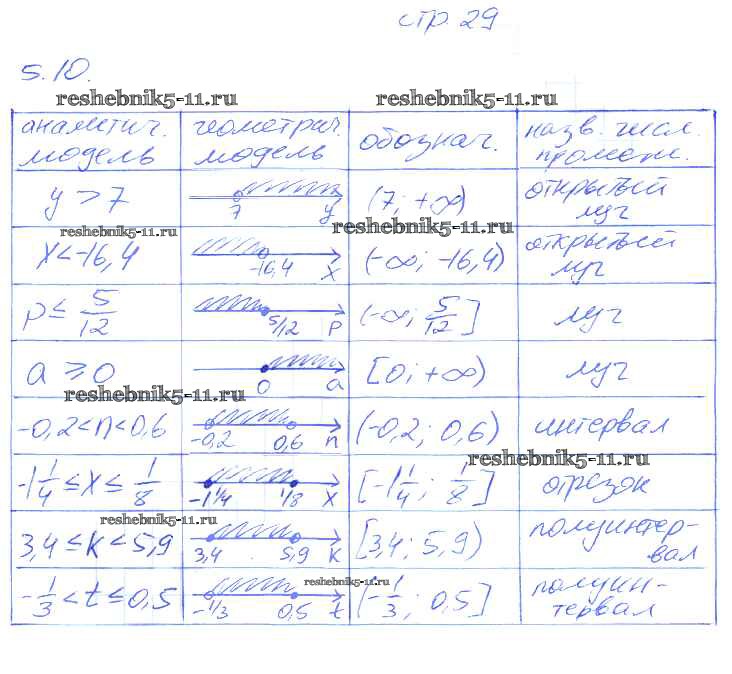 стр. 29
5.10.
reshebnik5-11.ru reshebnik5-11.ru
аналитич. модель | геометрич. модель | обознач. | назв. числ. промеж.
y > 7 | 7 y | (7; +∞) | открытый луч
reshebnik5-11.ru reshebnik5-11.ru
x < -16,4 | -16,4 x | (-∞; -16,4) | открытый луч
p ≤ 5/12 | 5/12 p | (-∞; 5/12] | луч
a ≥ 0 | 0 a | [0; +∞) | луч
reshebnik5-11.ru
-0,2 < n < 0,6 | -0,2 0,6 n | (-0,2; 0,6) | интервал
reshebnik5-11.ru
-1 1/4 ≤ x ≤ 1/8 | -1 1/4 1/8 x | [-1 1/4; 1/8] | отрезок
reshebnik5-11.ru
3,4 ≤ k < 5,9 | 3,4 5,9 k | [3,4; 5,9) | полуинтер-
вал
reshebnik5-11.ru
-1/3 < t ≤ 0,5 | -1/3 0,5 t | (-1/3; 0,5] | полуин-
тервал